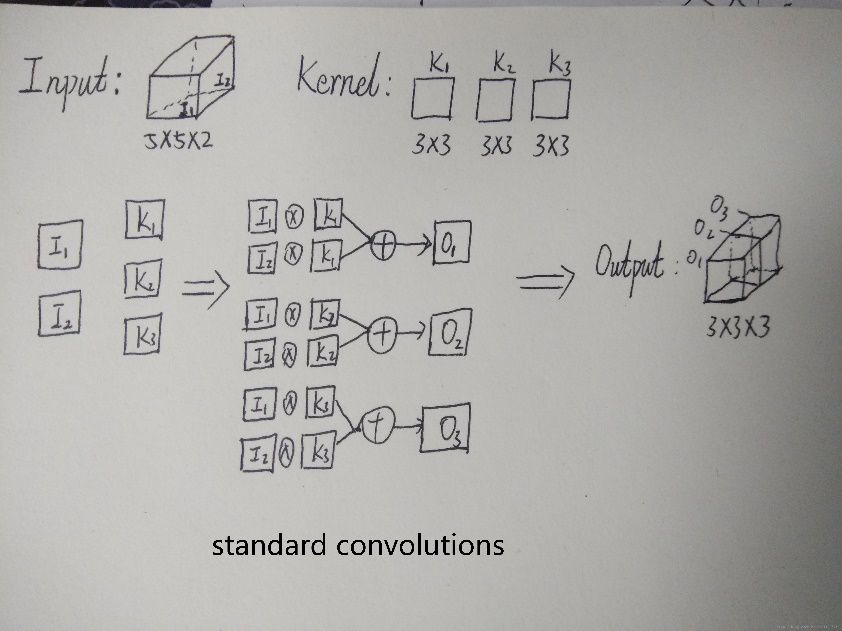 Input: I₂ I₁ Kernel: K₁ K₂ K₃
5X5X2 3X3 3X3 3X3
I₁ K₁
I₂ K₂
K₃
I₁ ⊗ K₁
I₂ ⊗ K₁ + O₁
I₁ ⊗ K₂
I₂ ⊗ K₂ + O₂
I₁ ⊗ K₃
I₂ ⊗ K₃ + O₃
Output: O₁ O₂ O₃
3X3X3
standard convolutions